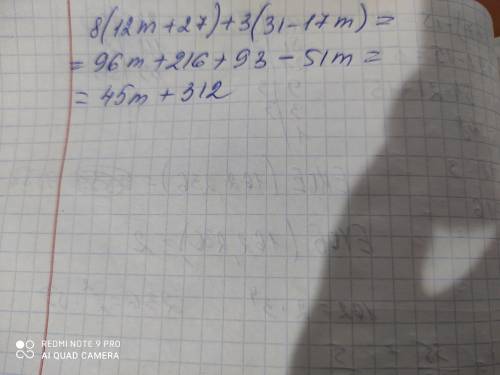 8(12m+27)+3(31-17m)=
=96m+216+93-51m=
=45m+312
REDMI NOTE 9 PRO
AI QUAD CAMERA